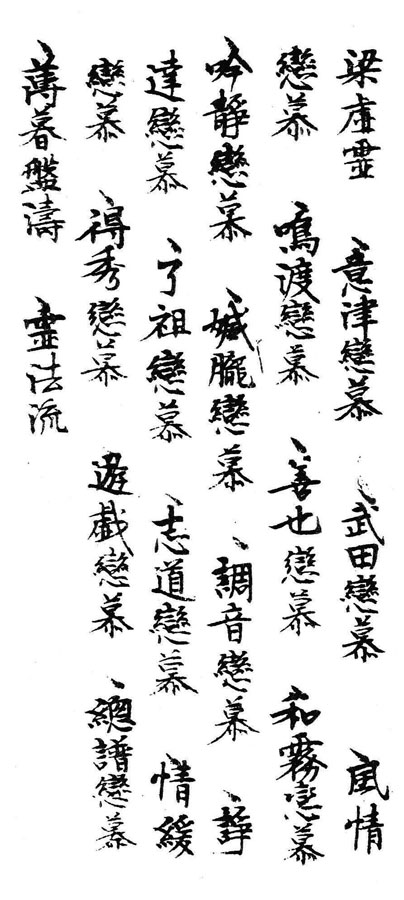 梁虚霊 、意津戀慕 、武田戀慕 風情
戀慕 、鳴渡戀慕 、善也戀慕 、和霧恋慕
、吟静戀慕 、朧戀慕 、調音戀慕 、静
達戀慕 、了祖戀慕 、志道戀慕 、情緩
戀慕 、得秀戀慕 、遊戯戀慕 、總譜戀慕
、薄暮盤濤 、霊法流